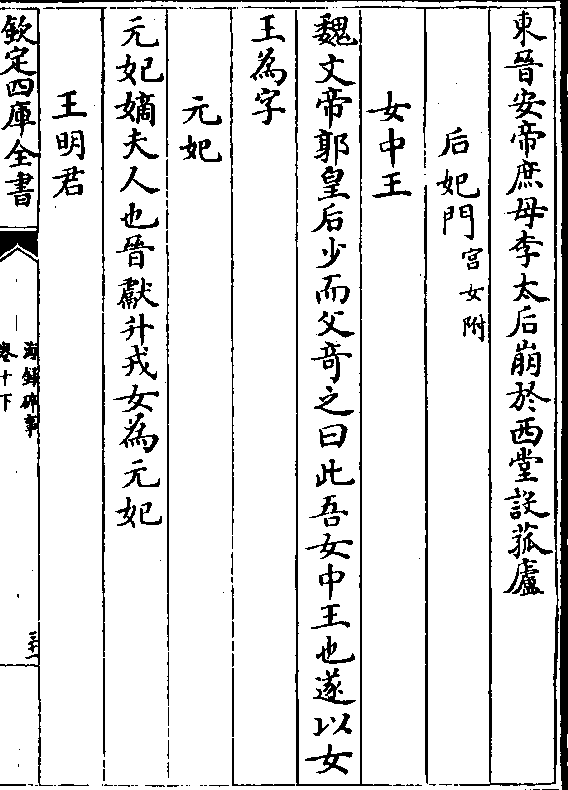 東晉安帝庶母李太后崩於西堂設菰廬
后妃門宫女附
女中王
魏文帝郭皇后少而父竒之曰此吾女中王也遂以女
王為字
元妃
元妃嫡夫人也晉獻升戎女為元妃
王明君
欽定四庫全書
海録碎事
卷十下